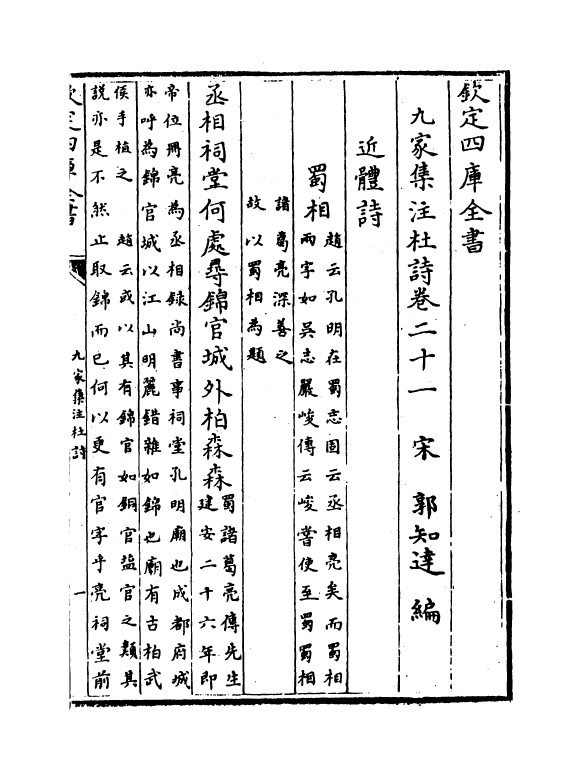 欽定四庫全書
九家集注杜詩卷二十一 宋 郭知達 編
近體詩
蜀相
趙云孔明在蜀志固云丞相亮矣而蜀相
兩字如吳志嚴峻傳云峻嘗使至蜀蜀相
諸葛亮深善之
故以蜀相為題
丞相祠堂何處尋錦官城外柏森森
蜀諸葛亮傳先生
建安二十六年即
帝位冊亮為丞相録尚書事祠堂孔明廟也成都府城
亦呼為錦官城以江山明麗錯雜如錦也廟有古柏武
侯手植之 趙云或以其有錦官如銅官盐官之類其
説亦是不然止取錦而已何以更有官字乎亮祠堂前
欽定四庫全書
九家集注杜詩
一